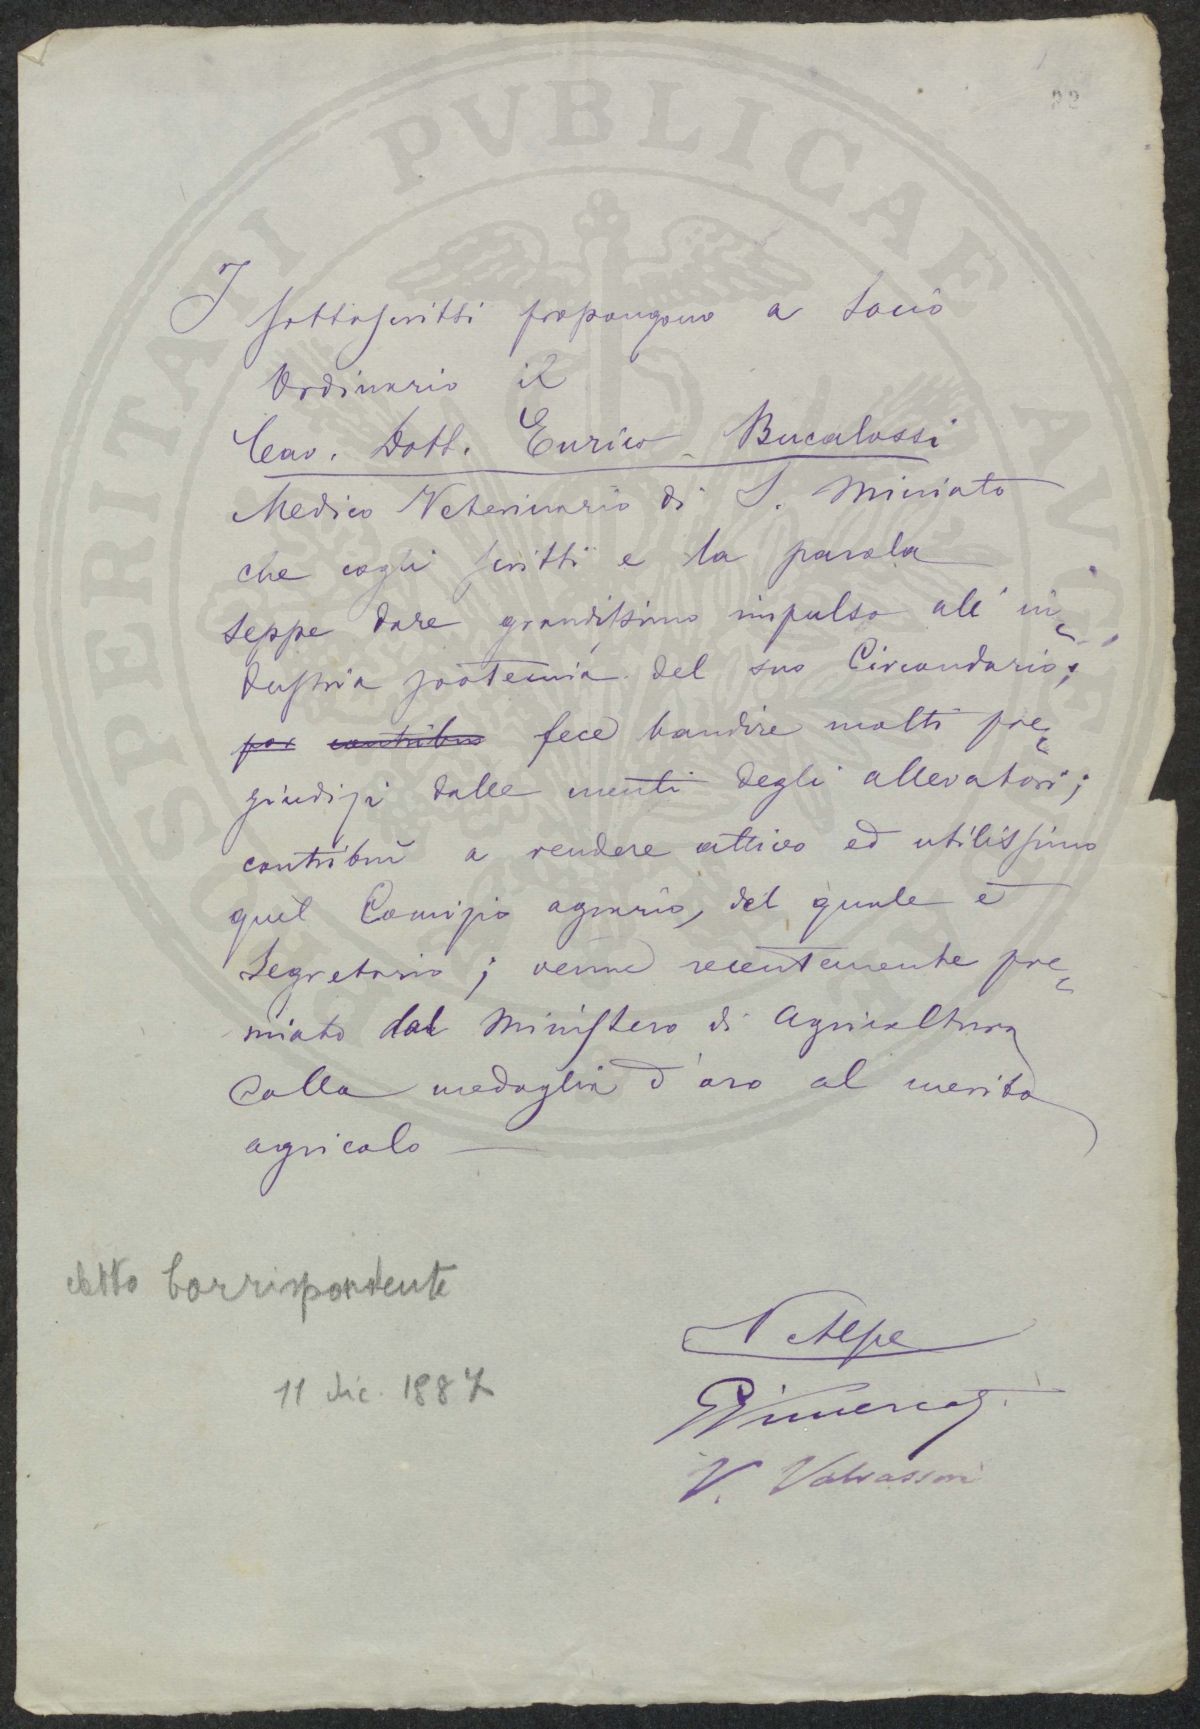 22
I sottoscritti propongono a Socio
Ordinario il
Cav. Dott. Enrico Bucalossi
Medico Veterinario di S. Miniato
che cogli scritti e la parola
seppe dare grandissimo impulso all' in=
dustria zootecnica del suo Circondario;
por contribuì fece bandire molti pre=
giudizi dalle menti degli allevatori;
contribuì a rendere attivo ed utilissimo
quel Comizio agrario, del quale è
Segretario; venne recentemente pre=
miato dal Ministero di Agricoltura
colla medaglia d'oro al merito
agricolo —
eletto Corrispondente
11 dic. 1887
V Alpe
G Vimercati
V. Valvassori
PROSPERITATI PVBLICAE AVGENDAE